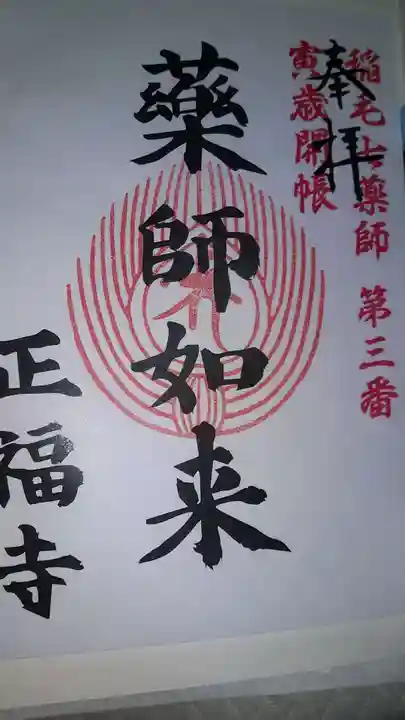 稲毛七薬師 第三番
寅歳開帳
奉拝
藥師如来
正福寺